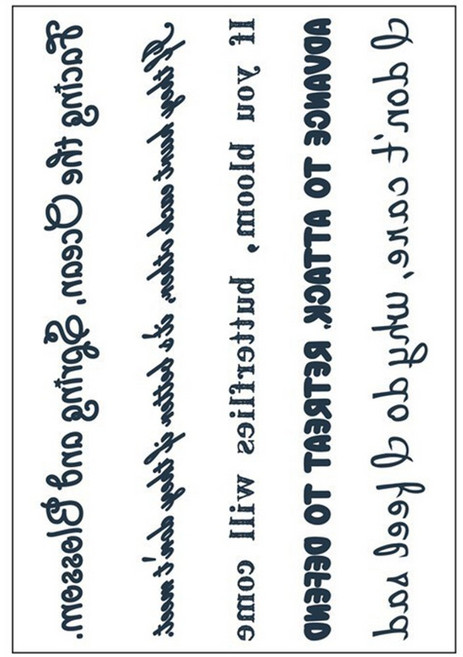 Facing the Ocean, Spring and Blossom.
If they hurt each other, it's better if they don't meet.
If you bloom, butterflies will come
ADVANCE TO ATTACK, RETREAT TO DEFEND
I don't care, why do I feel sad